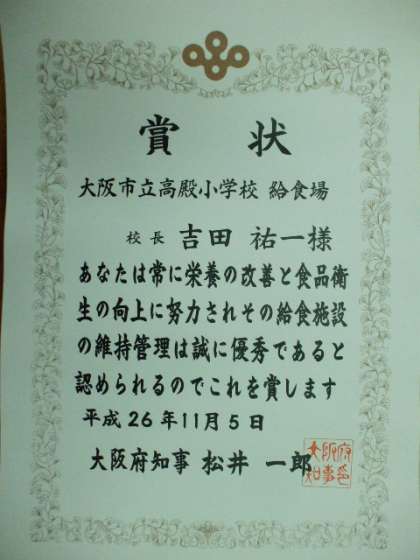 賞状
大阪市立高殿小学校 給食場
校長 吉田 祐一様
あなたは常に栄養の改善と食品衛
生の向上に努力されその給食施設
の維持管理は誠に優秀であると
認められるのでこれを賞します
平成26年11月5日
大阪府知事 松井 一郎
大阪府
知事印